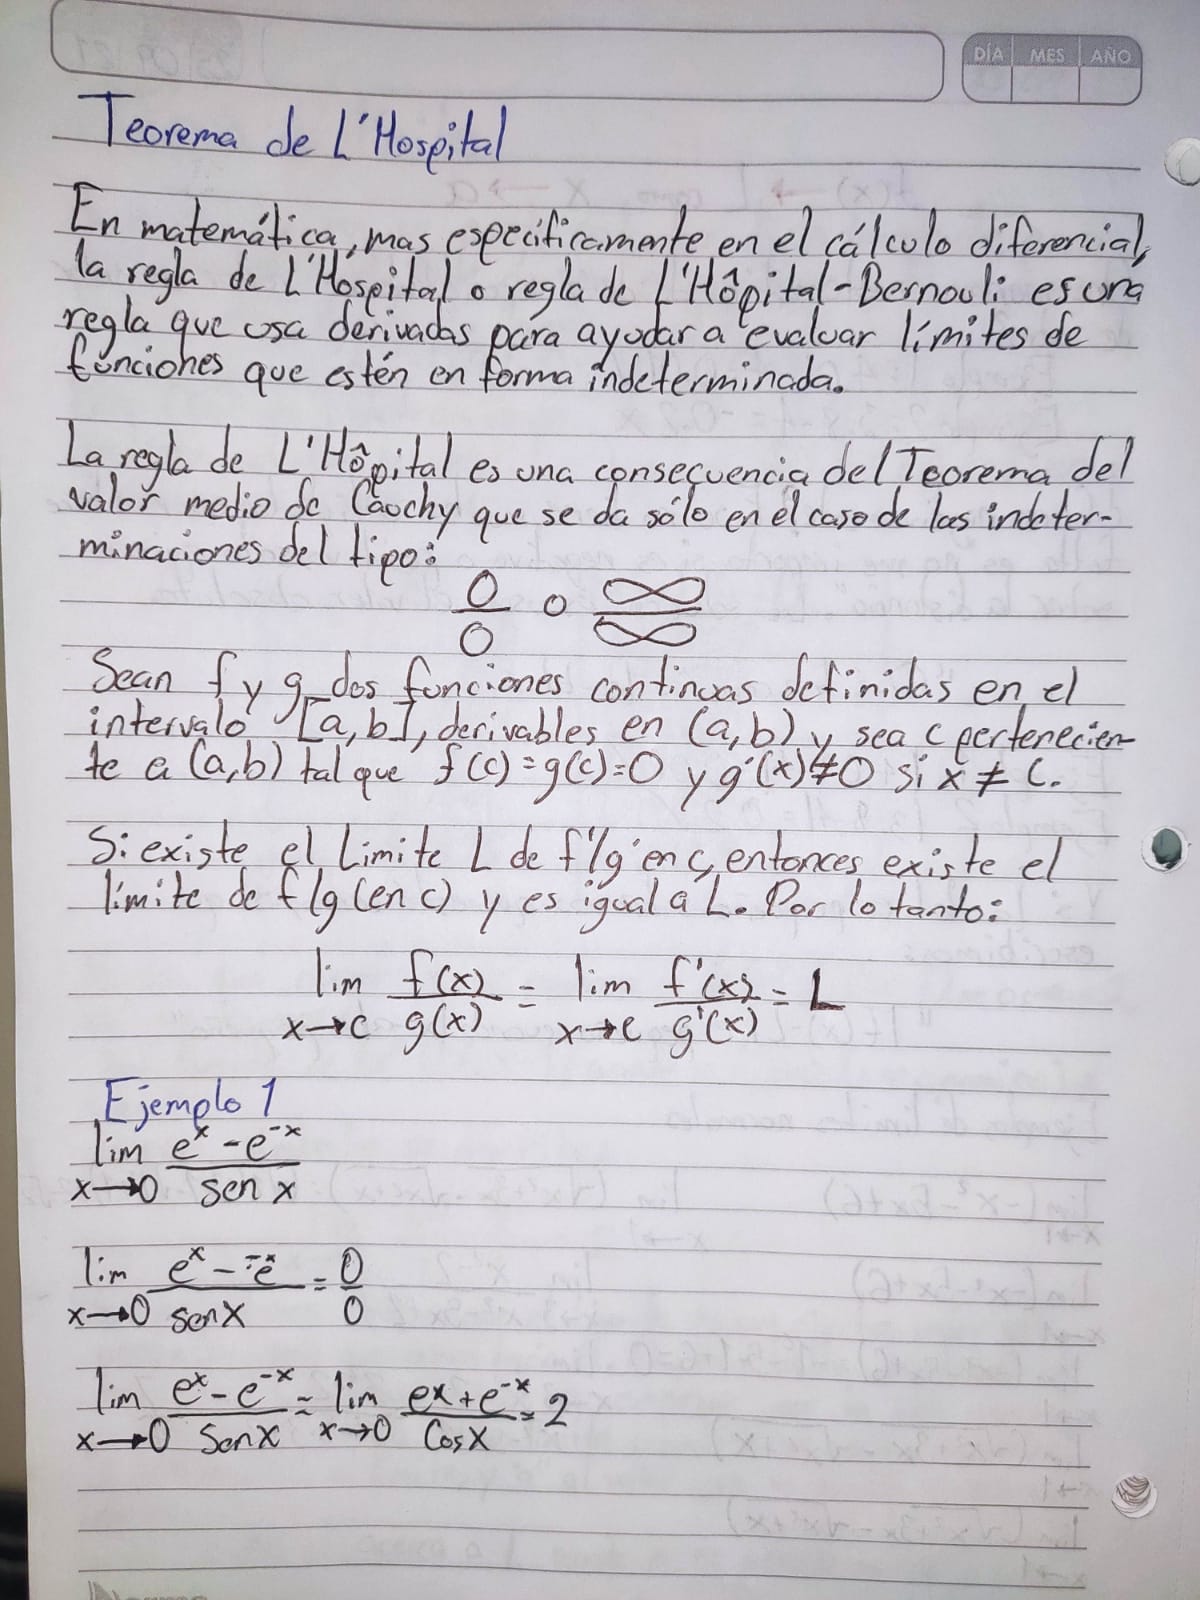 DÍA MES AÑO
Teorema de L'Hospital
En matemática, mas especificamente en el cálculo diferencial,
la regla de L'Hospital o regla de L'Hôpital-Bernouli es una
regla que usa derivadas para ayudar a evaluar límites de
funciones que estén en forma indeterminada.
La regla de L'Hôpital es una consecuencia del Teorema del
valor medio de Cauchy que se da sólo en el caso de las indeter-
minaciones del tipo:
0/0 o ∞/∞
Sean f y g dos funciones continuas definidas en el
intervalo [a,b], derivables en (a,b) y sea c pertenecien-
te a (a,b) tal que f(c)=g(c)=0 y g'(x)≠0 si x ≠ c.
Si existe el Limite L de f'/g' en c, entonces existe el
límite de f/g (en c) y es igual a L. Por lo tanto:
lim x→c f(x)/g(x) = lim x→c f'(x)/g'(x) = L
Ejemplo 1
lim x→0 (e^x - e^-x)/sen x
lim x→0 (e^x - ^-x e)/sen x = 0/0
lim x→0 (e^x - e^-x)/sen x = lim x→0 (ex + e^-x)/Cos x = 2